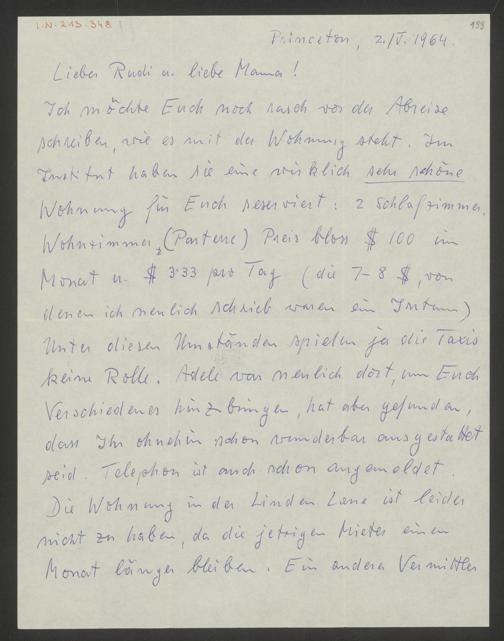 I.N-213.348
199
Princeton, 2./V. 1964.
Lieber Rudi u. liebe Mama!
Ich möchte Euch noch rasch vor der Abreise
schreiben, wie es mit der Wohnung steht. Im
Institut haben sie eine wirklich sehr schöne
Wohnung für Euch reserviert: 2 Schlafzimmer,
Wohnzimmer, (Parterre) Preis bloss $ 100 im
Monat u. $ 3.33 pro Tag (die 7-8 $, von
denen ich neulich schrieb waren ein Irrtum)
Unter diesen Umständen spielen ja die Taxis
keine Rolle. Adele war neulich dort, um Euch
Verschiedenes hinzubringen, hat aber gefunden,
dass Ihr ohnehin schon wunderbar ausgestattet
seid. Telephon ist auch schon angemeldet.
Die Wohnung in der Linden Lane ist leider
nicht zu haben, da die jetzigen Mieter einen
Monat länger bleiben. Ein anderer Vermittler